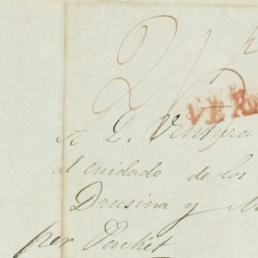 VER
A D. Ventura
al cuidado de los
Drusina y M
per Packet